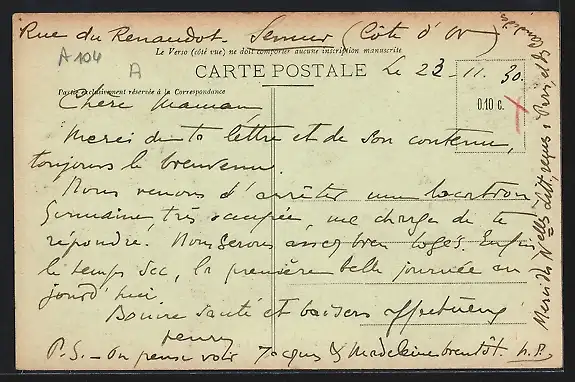 Rue du Renaudot. Semur (Côte d'Or)
Le Verso (côté vue) ne doit comporter aucune inscription manuscrite
A 104
A
CARTE POSTALE
Le 23-11. 30.
Partie exclusivement réservée à la Correspondance
0.10 c.
Chère Maman,
Merci de ta lettre et de son contenu,
toujours le bienvenu.
Nous venons d'arrêter une location
Germaine, très occupée, me charge de te
répondre. Nous serons assez bien logés. Enfin
le temps sec, la première belle journée
jourd'hui.
Bonne santé et baisers affectueux
Henry
P.S. - On pense voir Jacques & Madeleine bientôt. H.P.
Merci des Nelles